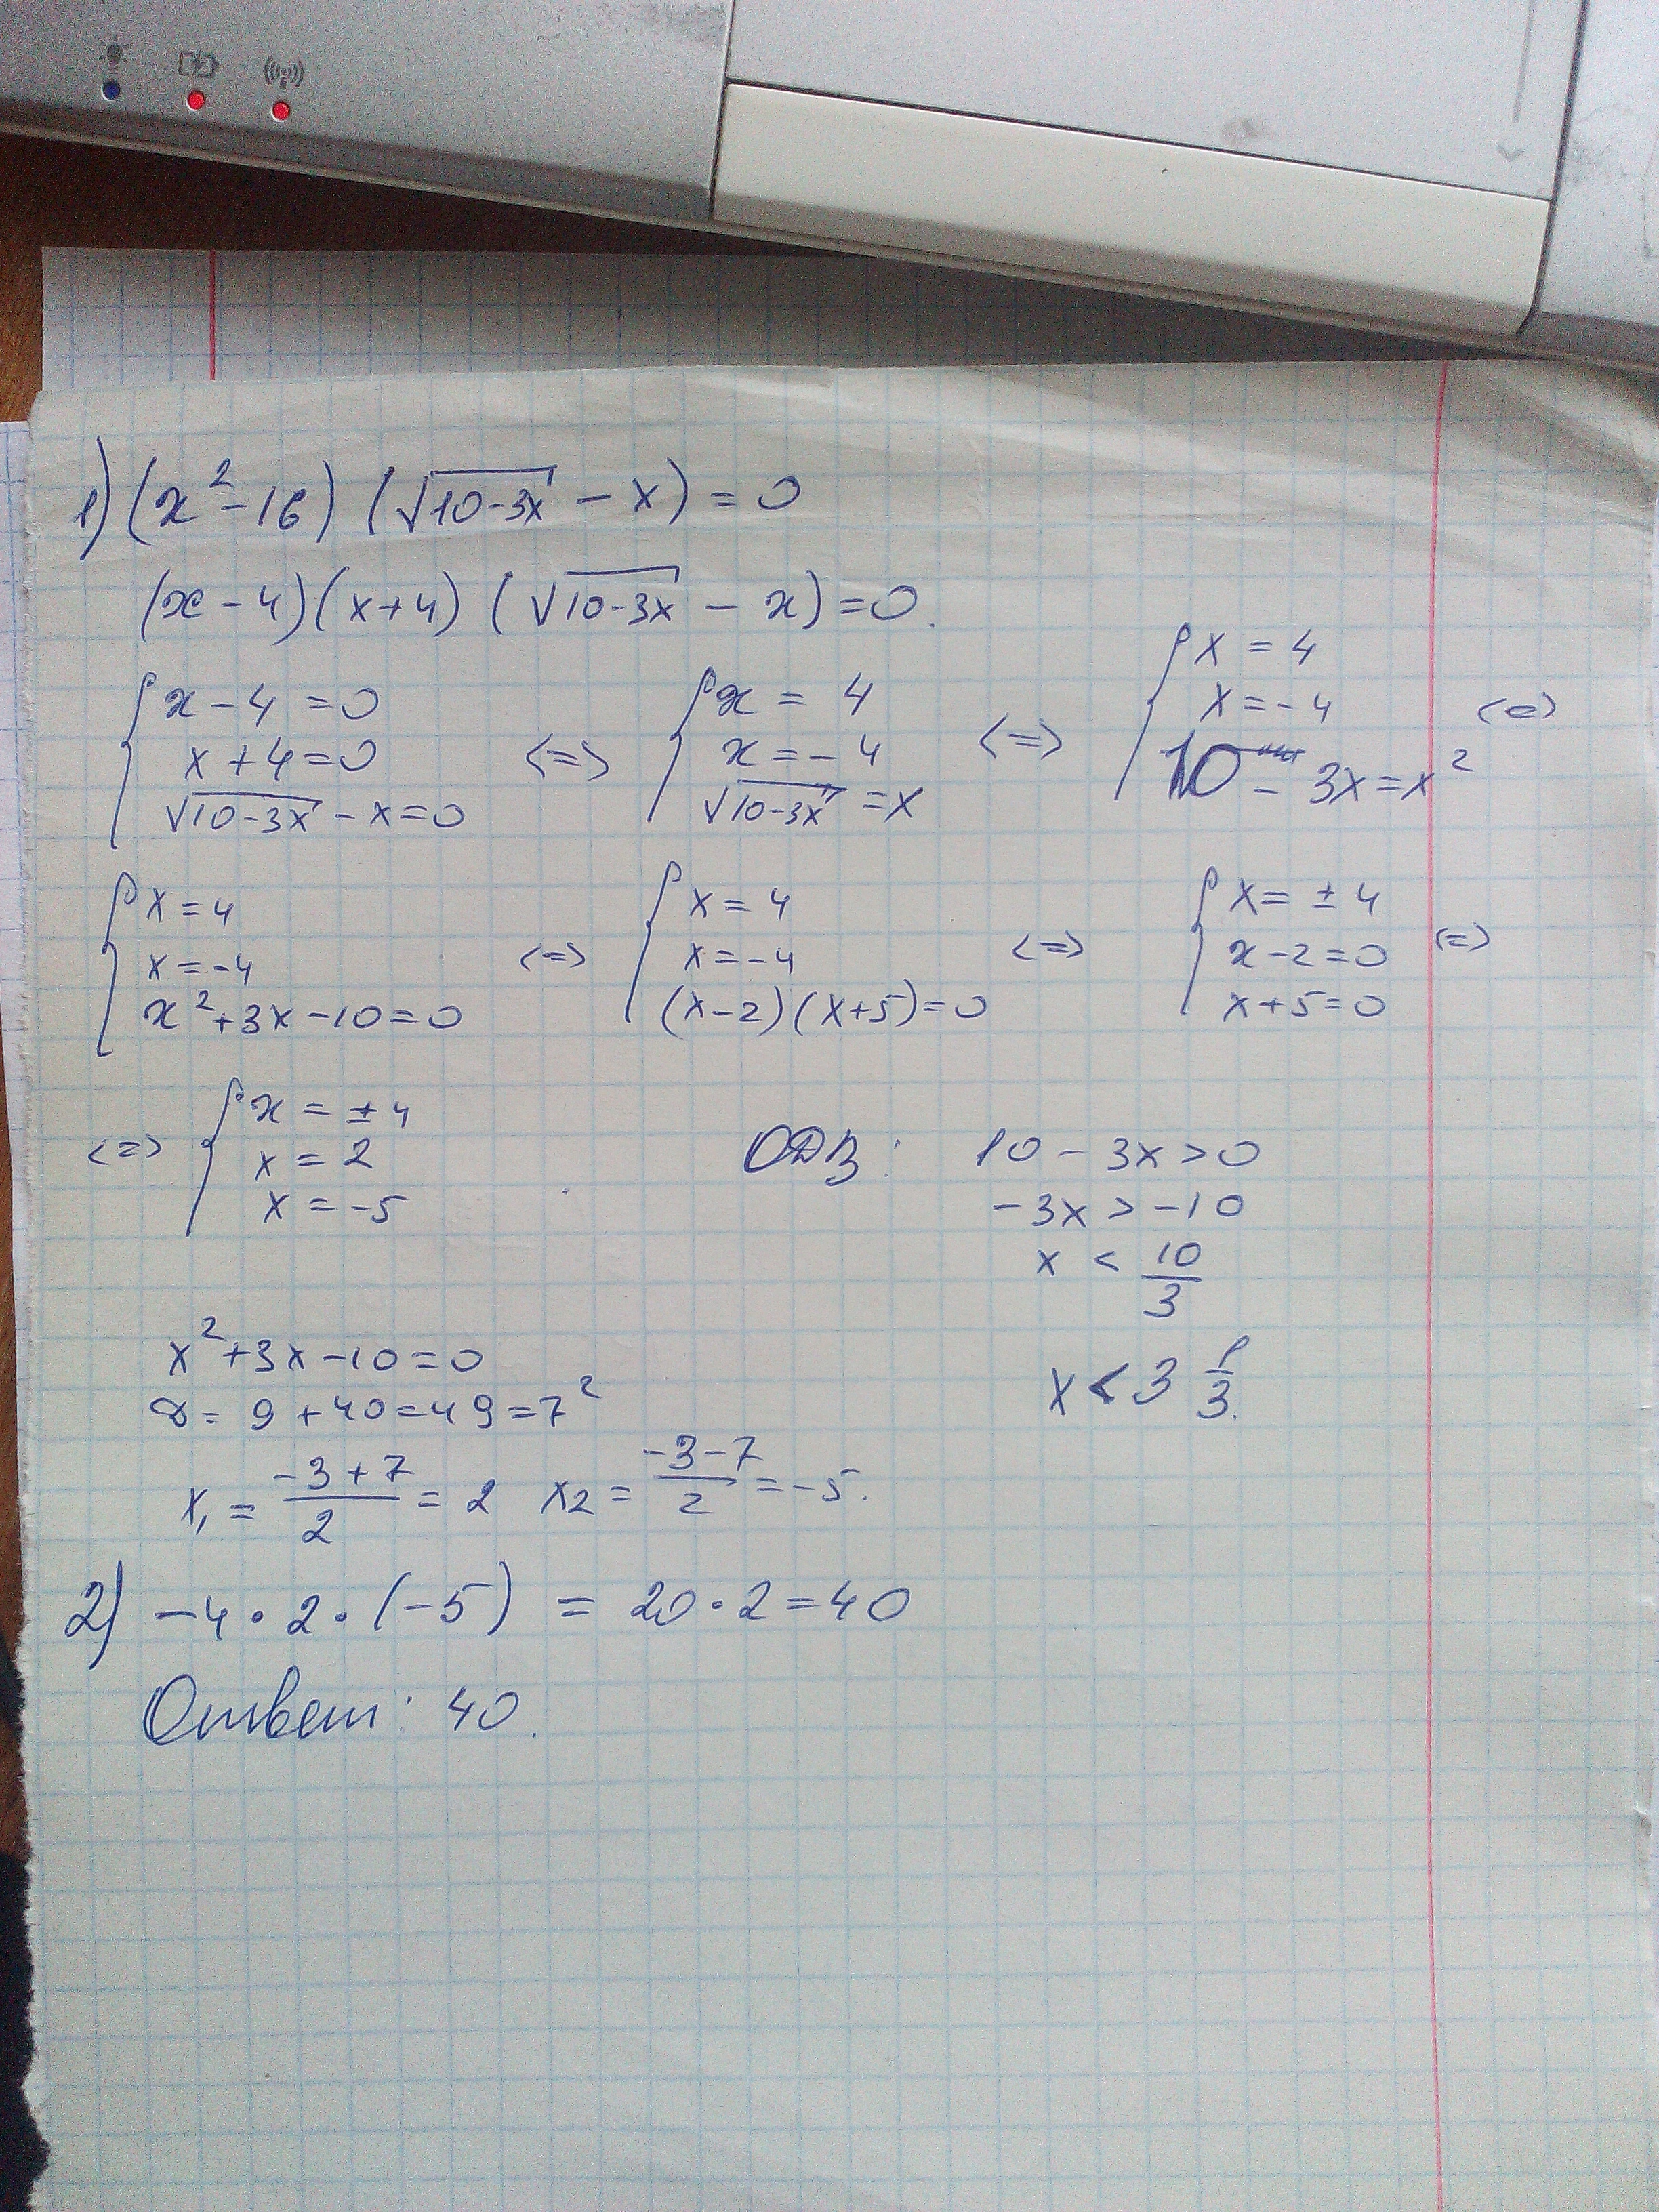 1) (x²-16) (√10-3x - x) = 0
(x-4)(x+4) (√10-3x - x) = 0.
{ x-4=0 <=> { x = 4 <=> { x = 4 <=>
x+4=0 x = -4 x = -4
√10-3x - x=0 √10-3x = x 10 - 3x = x²
{ x=4 <=> { x = 4 <=> { x = ± 4 <=>
x=-4 x=-4 x-2=0
x²+3x-10=0 (x-2)(x+5)=0 x+5=0
<=> { x = ±4
x = 2
x = -5
ОДЗ: 10 - 3x > 0
-3x > -10
x < 10/3
x < 3 1/3.
x²+3x-10=0
D = 9+40=49=7²
x₁ = (-3+7)/2 = 2 x₂ = (-3-7)/2 = -5.
2) -4 · 2 · (-5) = 20 · 2 = 40
Ответ: 40.